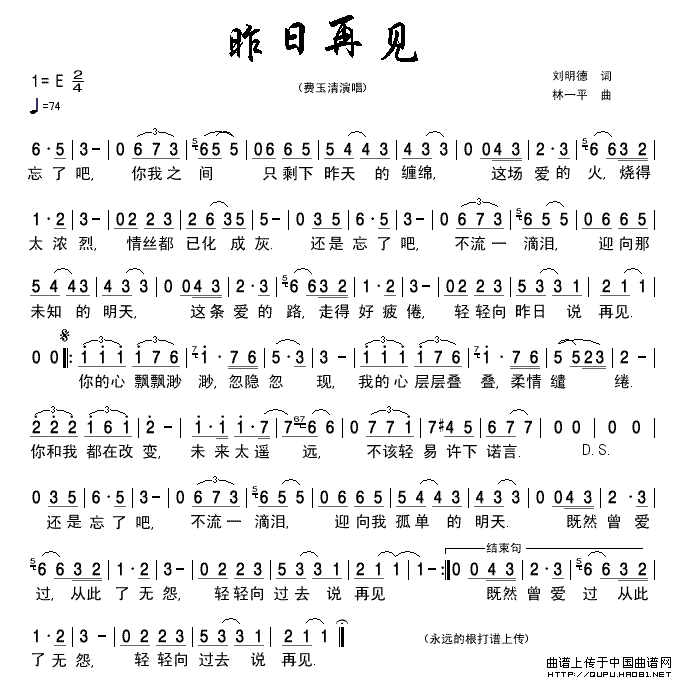 昨日再见
1=E 2/4
（费玉清演唱）
刘明德 词
♩=74
林一平 曲
6·5 | 3- | 0 6 7 3 | 6 5 5 | 0 6 6 5 | 5 4 4 3 | 4 3 3 | 0 0 4 3 | 2·3 | 6 6 3 2 |
忘了吧, 你我之间 只剩下 昨天 的 缠绵, 这场 爱的 火, 烧得
1·2 | 3- | 0 2 2 3 | 2 6 3 5 | 5- | 0 3 5 | 6·5 | 3- | 0 6 7 3 | 6 5 5 | 0 6 6 5 |
太浓烈, 情丝都 已化 成灰. 还是忘了吧, 不流一 滴泪, 迎向那
5 4 4 3 | 4 3 3 | 0 0 4 3 | 2·3 | 6 6 3 2 | 1·2 | 3- | 0 2 2 3 | 5 3 3 1 | 2 1 1 |
未知 的 明天, 这条 爱的 路, 走得 好疲倦, 轻轻向 昨日 说 再见.
0 0 |: 1 1 1 | 1 7 6 | 1·1 | 7 6 | 5·3 | 1 1 1 | 1 7 6 | 1·7 6 | 5 5 2 3 | 2 - |
你的心 飘飘渺 渺, 忽隐忽 现, 我的心 层层叠 叠, 柔情缱 绻.
2 2 2 | 1 6 1 | 2 - | 1·1 | 1·7 | 7 6 6 | 0 7 7 1 | 7 #4 5 | 6 7 7 | 0 0 | 0 0 |
你和我 都在改 变, 未来太遥 远, 不该轻 易 许下 诺言. D.S.
0 3 5 | 6·5 | 3- | 0 6 7 3 | 6 5 5 | 0 6 6 5 | 5 4 4 3 | 4 3 3 | 0 0 4 3 | 2·3 |
还是忘了吧, 不流一 滴泪, 迎向我 孤单 的 明天. 既然 曾爱
结束句
6 6 3 2 | 1·2 | 3- | 0 2 2 3 | 5 3 3 1 | 2 1 1 | 1 - :| 0 0 4 3 | 2·3 | 6 6 3 2 |
过, 从此 了无怨, 轻轻向 过去 说 再见 既然 曾爱 过 从此
1·2 | 3- | 0 2 2 3 | 5 3 3 1 | 2 1 | 1 - ‖
了无怨, 轻轻向 过去 说 再见.
（永远的根打谱上传）
曲谱上传于中国曲谱网
HTTP://QUPU.HAO81.NET